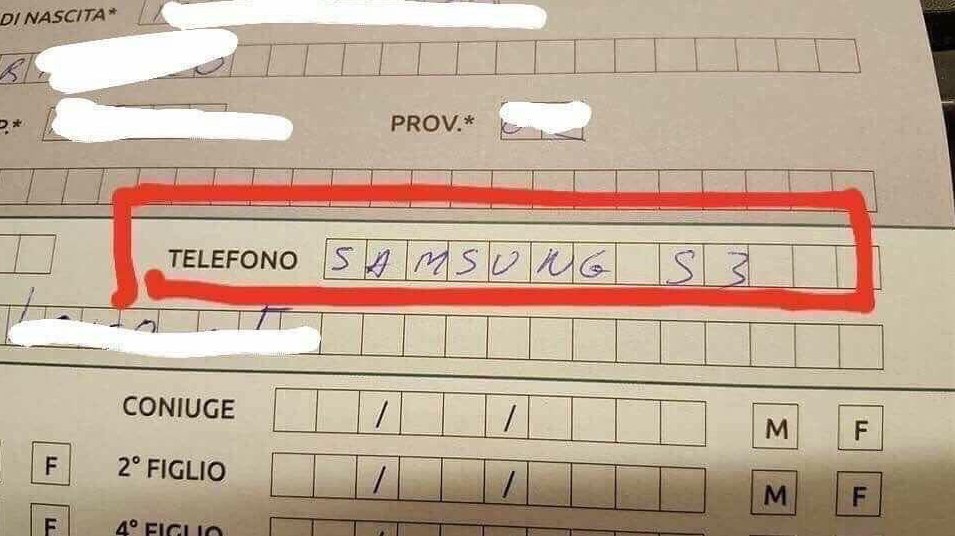 DI NASCITA*
PROV.*
TELEFONO SAMSUNG S3
CONIUGE / / M F
F 2° FIGLIO / / M F
F 4° FIGLIO